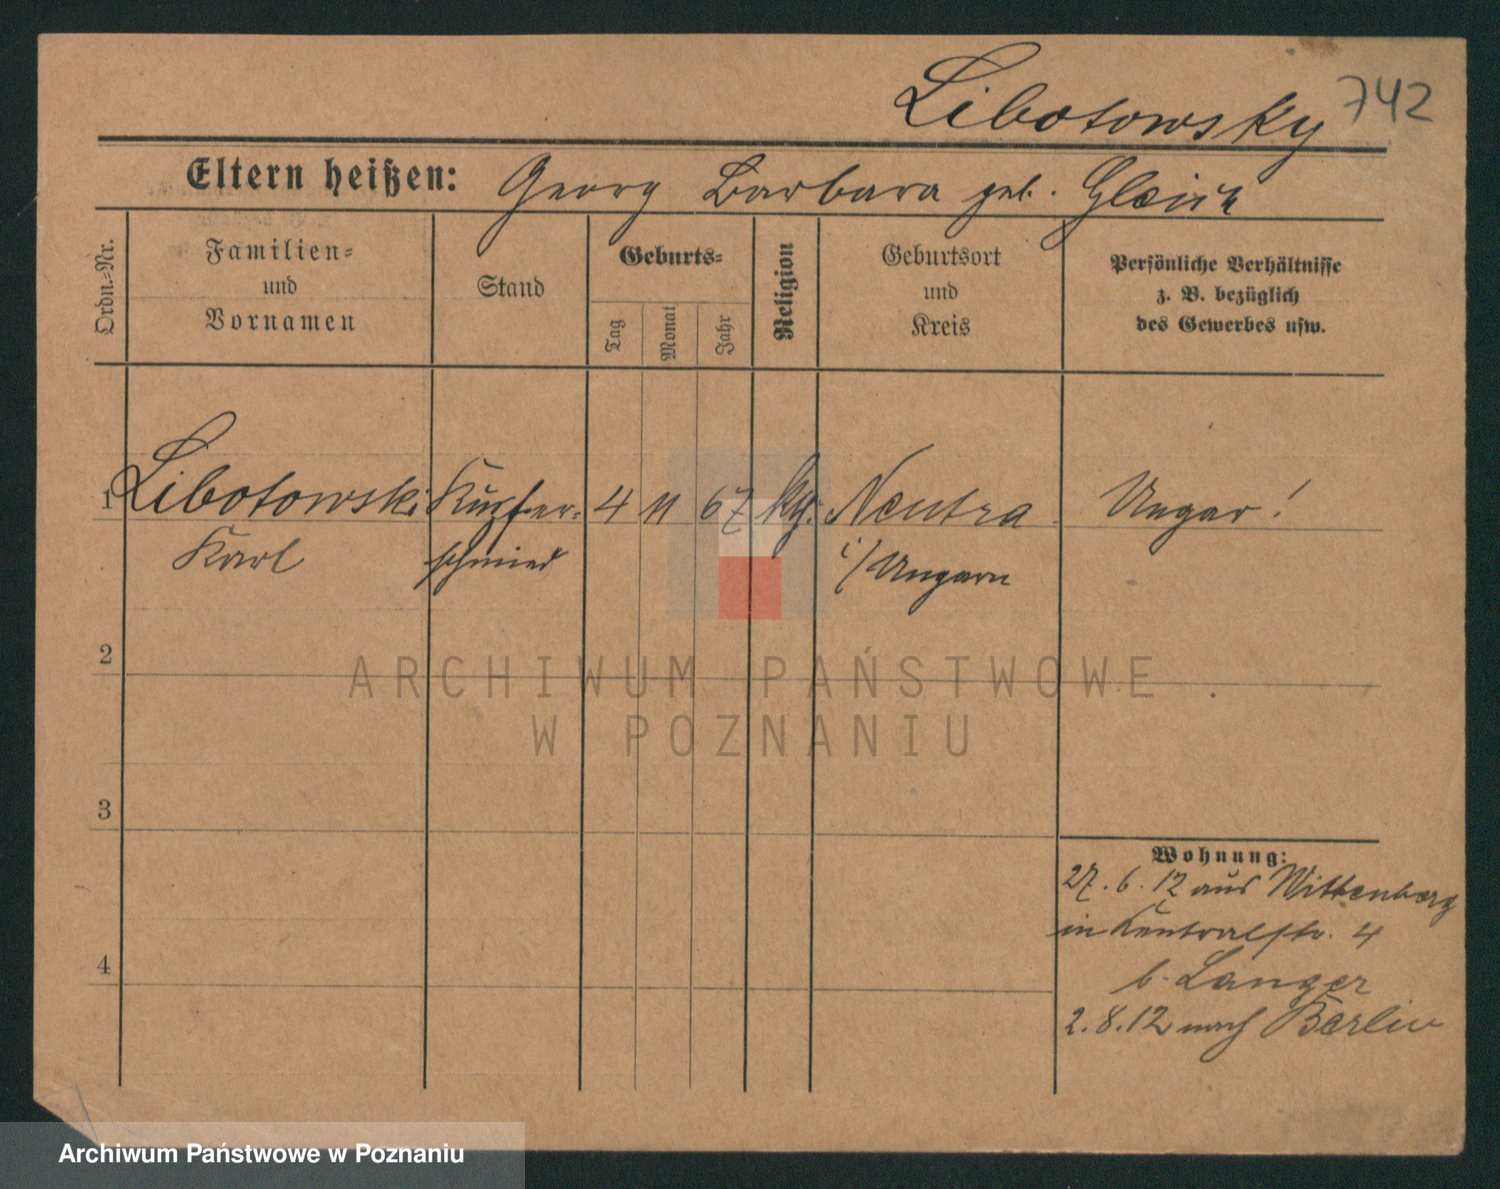 Libotowsky 742
Eltern heißen: Georg Barbara geb.
Ordn.-Nr.
Familien-
und
Vornamen
Stand
Geburts-
Tag
Monat
Jahr
Religion
Geburtsort
und
Kreis
Persönliche Verhältnisse
z. B. bezüglich
des Gewerbes usw.
1 Libotowski Kupfer- 4 11 67 kth. Neutra Ungar!
Karl schmied i/Ungarn
2
ARCHIWUM PAŃSTWOWE
W POZNANIU
3
Wohnung:
27. 6. 12 aus Wittenberg
in Zentralstr. 4
b. Langer
4
2. 8. 12 nach Berlin
Archiwum Państwowe w Poznaniu